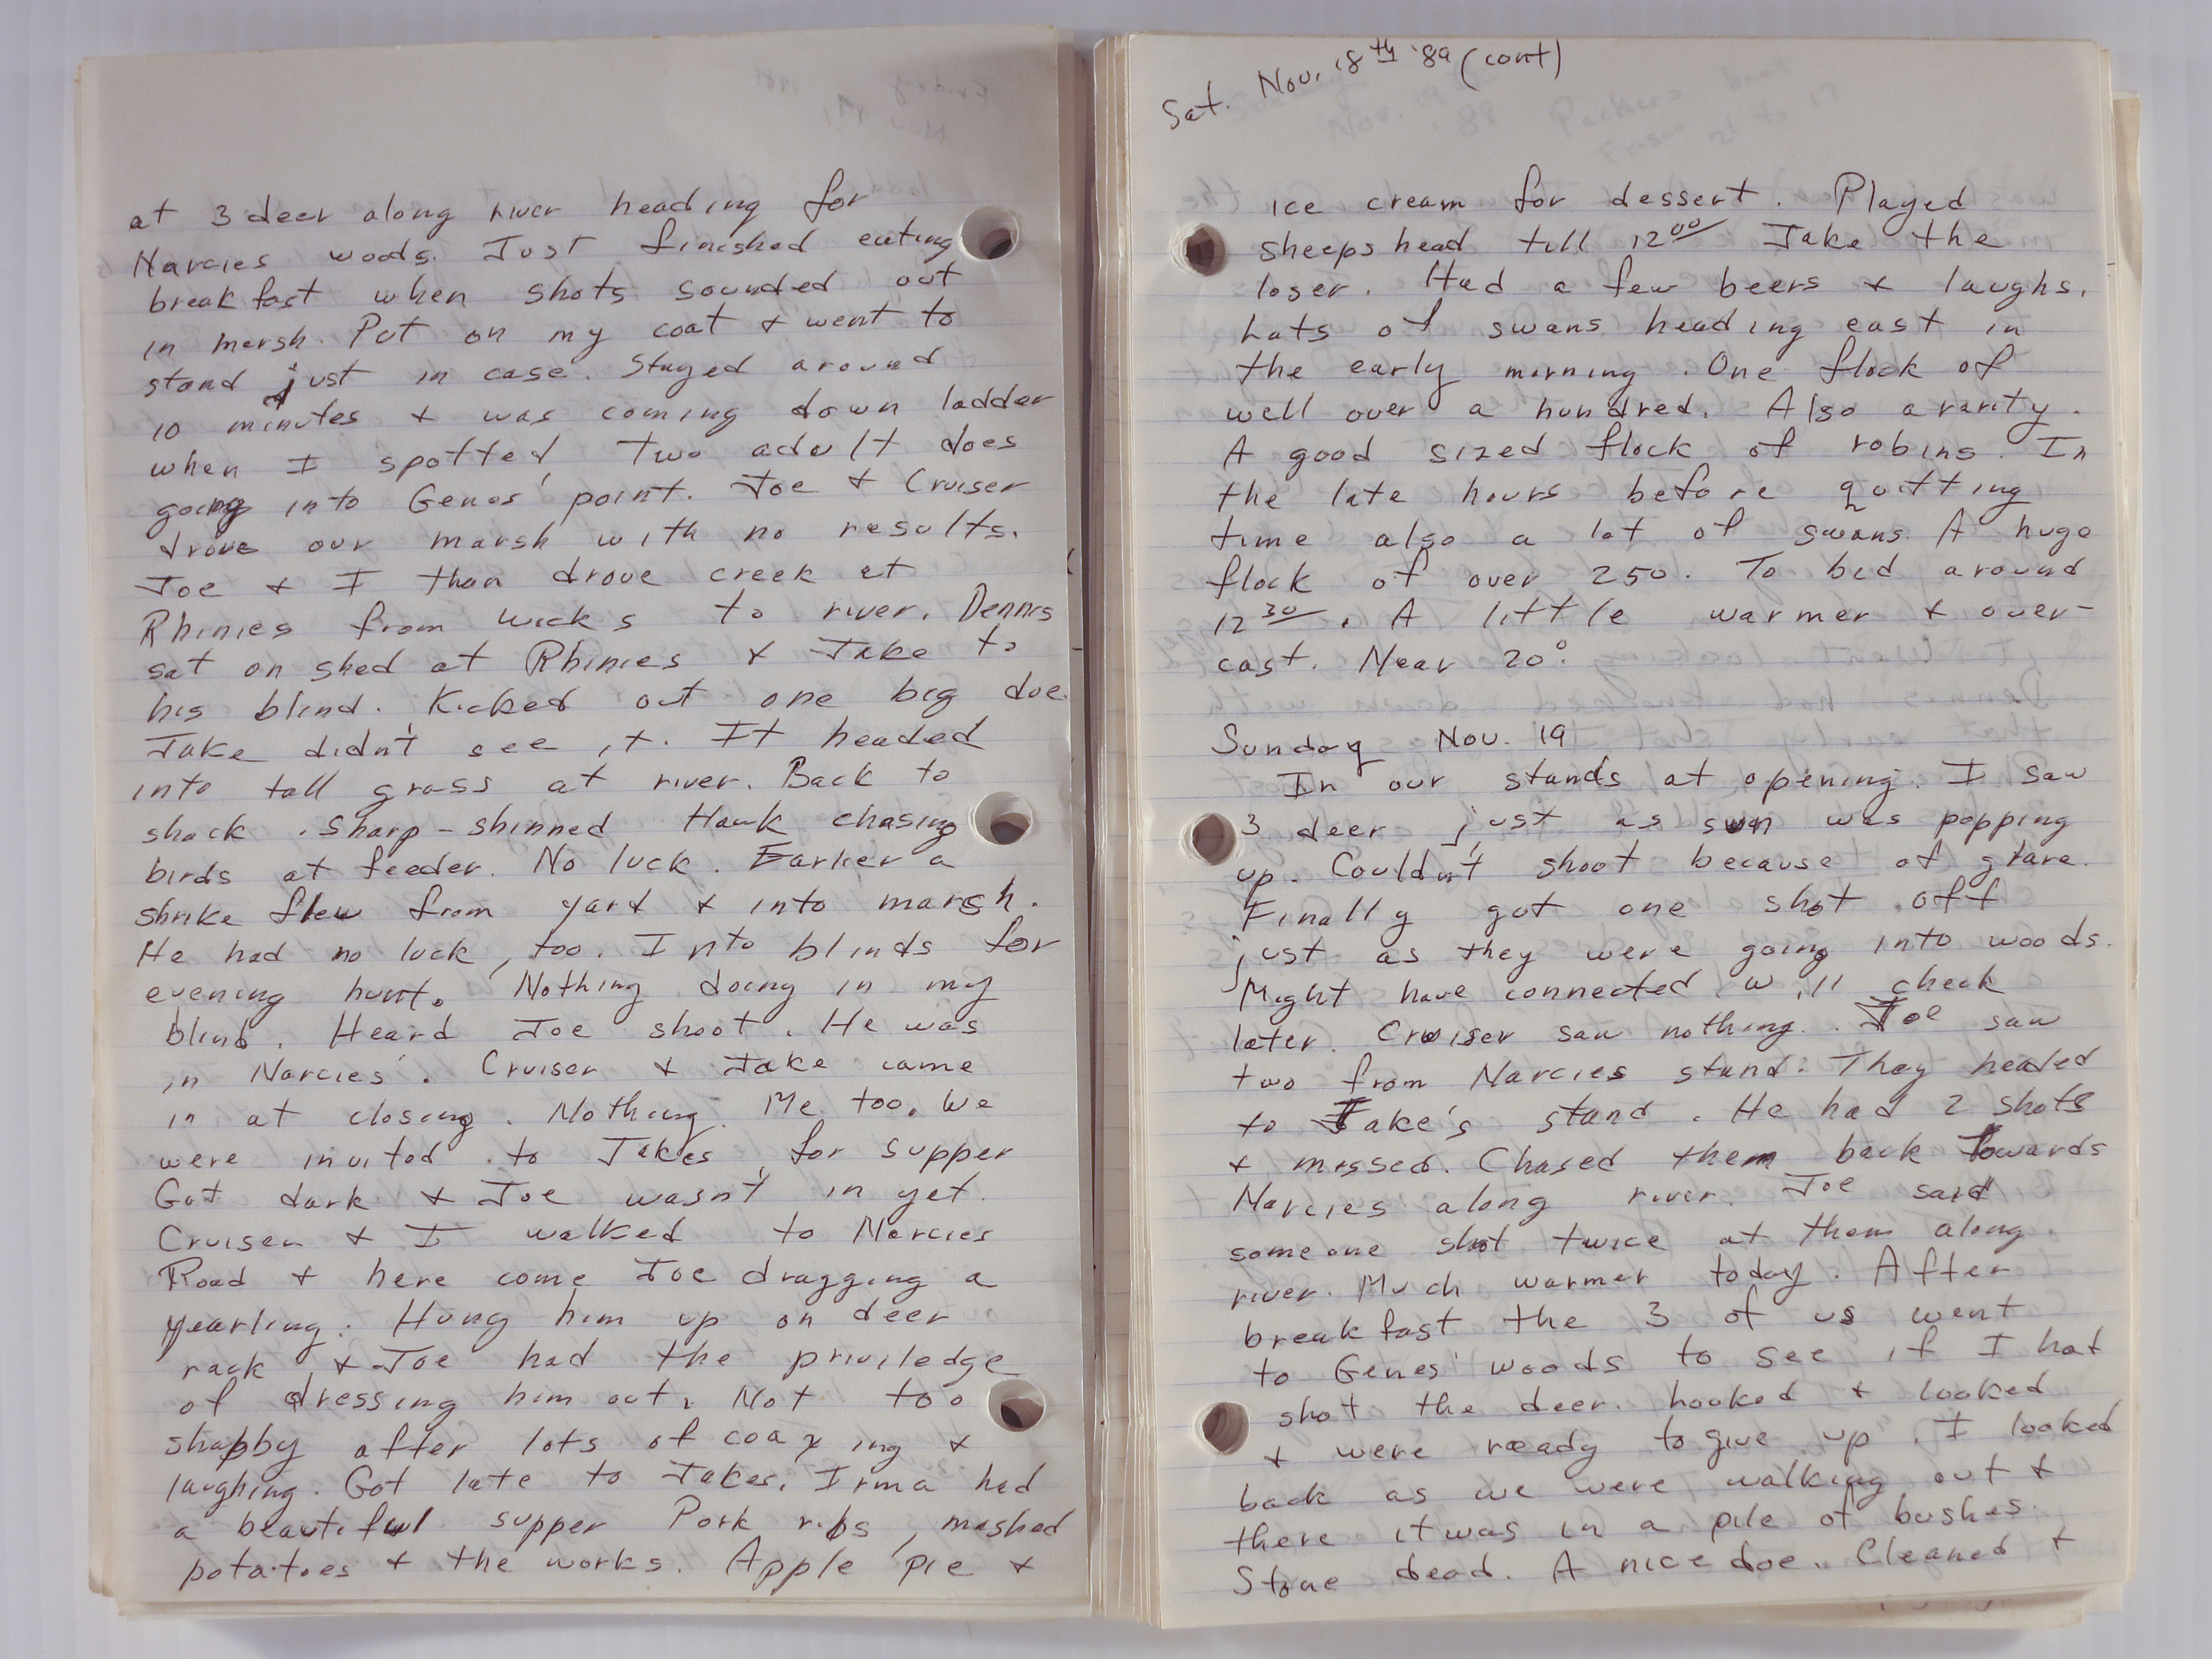 at 3 deer along river heading for
Narcies woods. Just finished eating
breakfast when shots sounded out
in marsh. Put on my coat & went to
stand just in case. Stayed around
10 minutes & was coming down ladder
when I spotted two adult does
going into Genes' point. Joe & Cruiser
drove our marsh with no results.
Joe & I than drove creek at
Rhinies from wicks to river. Dennis
sat on shed at Rhinies & Jake to
his blind. Kicked out one big doe.
Jake didn't see it. It headed
into tall grass at river. Back to
shack. Sharp-shinned Hawk chasing
birds at feeder. No luck. Earlier a
shrike flew from yard & into marsh.
He had no luck, too. Into blinds for
evening hunt. Nothing doing in my
blind. Heard Joe shoot. He was
in Narcies'. Cruiser & Jake came
in at closing. Nothing. Me too. We
were invited to Jakes for supper
Got dark & Joe wasn't in yet.
Cruiser & I walked to Narcies
Road & here come Joe dragging a
yearling. Hung him up on deer
rack & Joe had the priviledge
of dressing him out. Not too
shabby after lots of coaxing &
laughing. Got late to Jakes. Irma had
a beautiful supper Pork ribs, mashed
potatoes & the works. Apple pie &
Sat. Nov. 18th '89 (cont)
ice cream for dessert. Played
sheepshead till 12 00 Jake the
loser. Had a few beers & laughs.
Lots of swans heading east in
the early morning. One flock of
well over a hundred. Also a rarity.
A good sized flock of robins. In
the late hours before quitting
time also a lot of swans. A huge
flock of over 250. To bed around
12 30. A little warmer & over-
cast. Near 20°.
Sunday Nov. 19
In our stands at opening. I saw
3 deer just as sun was popping
up. Couldn't shoot because of glare.
Finally got one shot off
just as they were going into woods.
Might have connected will check
later. Cruiser saw nothing. Joe saw
two from Narcies stand. They headed
to Jake's stand. He had 2 shots
& missed. Chased them back towards
Narcies along river. Joe said
someone shot twice at them along
river. Much warmer today. After
breakfast the 3 of us went
to Genes' woods to see if I hat
shot the deer. hooked & looked
& were ready to give up. I looked
back as we were walking out &
there it was in a pile of bushes.
Stone dead. A nice doe. Cleaned &